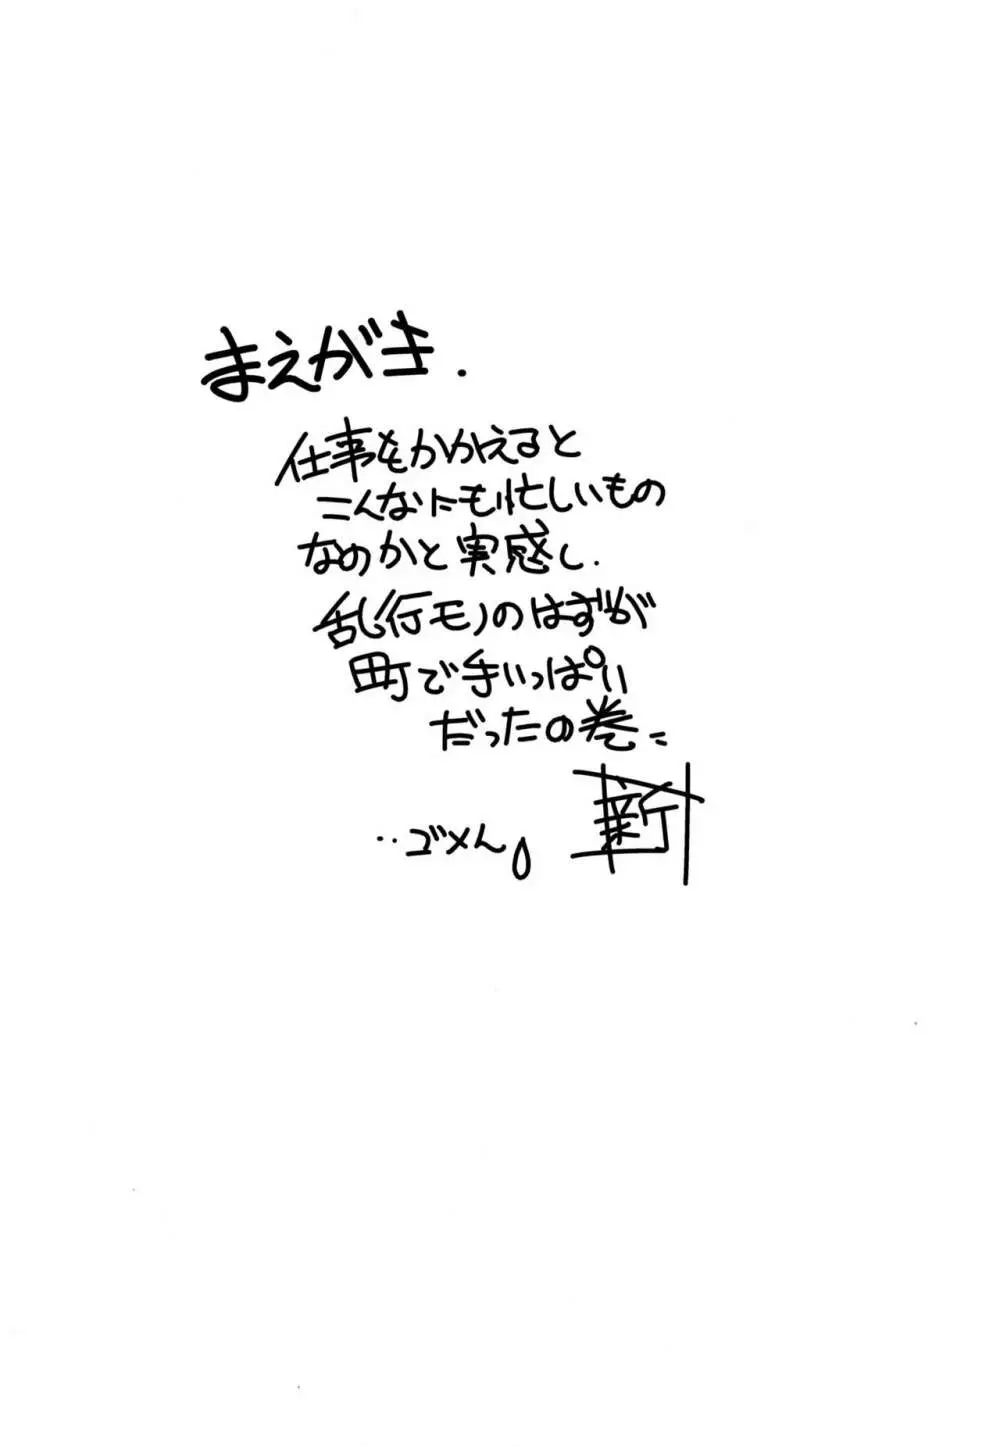 まえがき.
仕事をかかえると
こんなにも忙しいもの
なのかと実感し.
乱行モノのはずが
町で手いっぱい
だったの巻..
‥ゴメん。
新